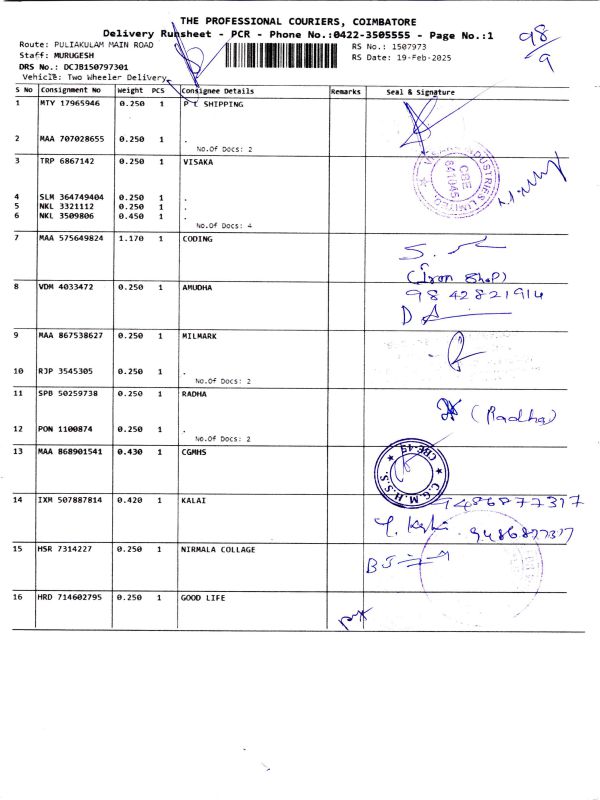 THE PROFESSIONAL COURIERS, COIMBATORE
Delivery Runsheet - PCR - Phone No.:0422-3505555 - Page No.:1
98/9
Route: PULIAKULAM MAIN ROAD
RS No.: 1507973
Staff: MURUGESH
RS Date: 19-Feb-2025
DRS No.: DCJB150797301
Vehicle: Two Wheeler Delivery
S No Consignment No Weight PCS Consignee Details Remarks Seal & Signature
1 MTY 17965946 0.250 1 P L SHIPPING
2 MAA 707028655 0.250 1 .
No.Of Docs: 2
3 TRP 6867142 0.250 1 VISAKA
INDUSTRIES LIMITED
CBE
641045
4 SLM 364749404 0.250 1 .
5 NKL 3321112 0.250 1 .
6 NKL 3509806 0.450 1 .
No.Of Docs: 4
7 MAA 575649824 1.170 1 CODING
(Iron Shop)
8 VDM 4033472 0.250 1 AMUDHA
9842821914
9 MAA 867538627 0.250 1 MILMARK
10 RJP 3545305 0.250 1 .
No.Of Docs: 2
11 SPB 50259738 0.250 1 RADHA
(Radha)
12 PON 1100874 0.250 1 .
No.Of Docs: 2
13 MAA 868901541 0.430 1 CGMHS
C.G.M.H.S.S. CBE-45
14 IXM 507887814 0.420 1 KALAI
9486877317
9486877317
15 HSR 7314227 0.250 1 NIRMALA COLLAGE
16 HRD 714602795 0.250 1 GOOD LIFE